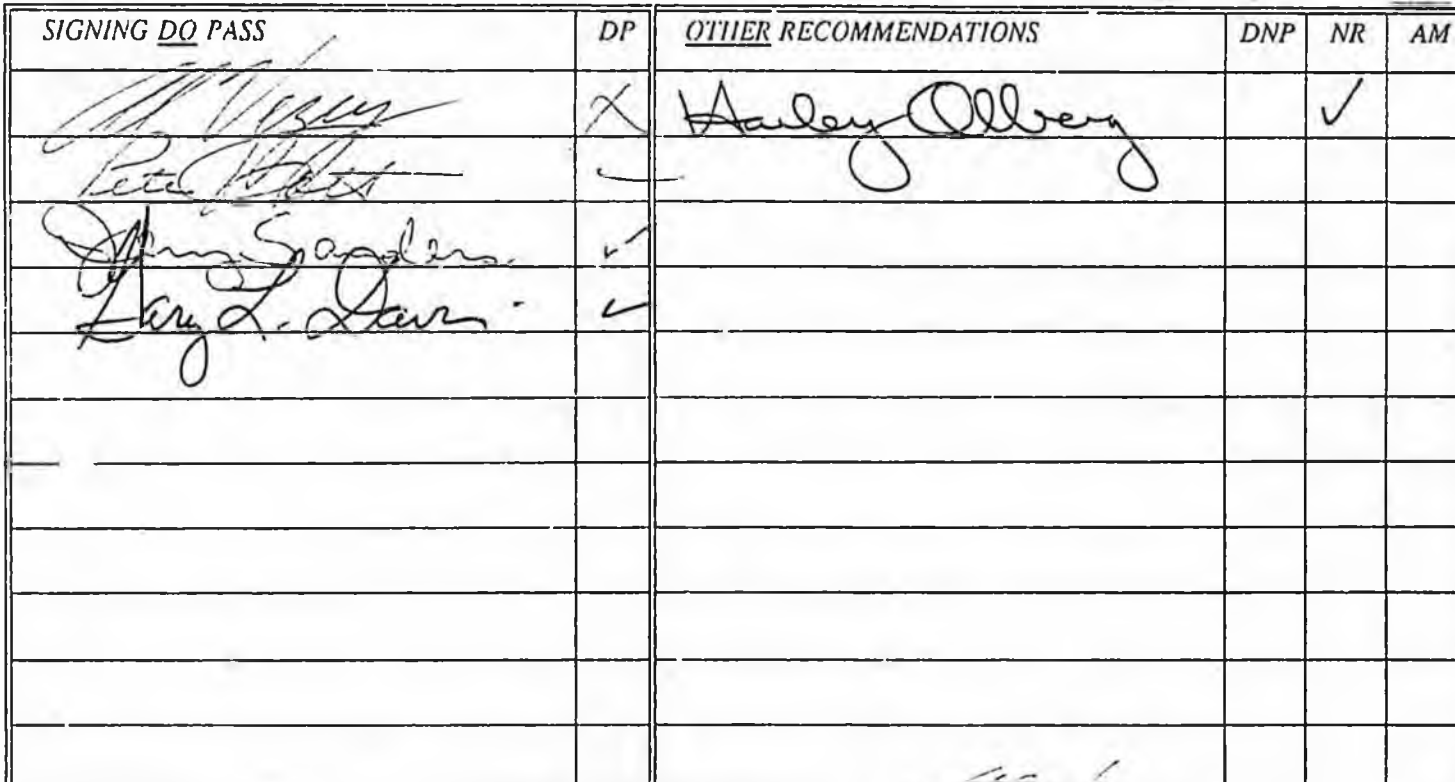 SIGNING DO PASS DP OTHER RECOMMENDATIONS DNP NR AM
Al Vezey X Harley Olberg ✓
Pete Kott
Jerry Sanders ✓
Gary L. Davis ✓